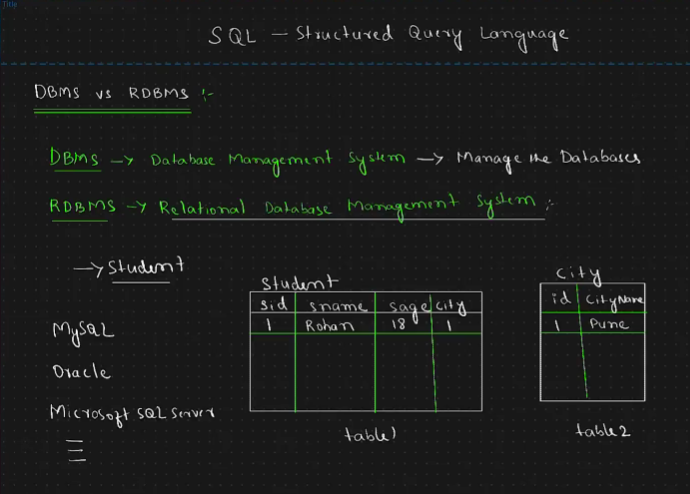 Title
SQL — Structured Query Language
DBMS vs RDBMS :-
DBMS → Database Management System → Manage the Databases
RDBMS → Relational Database Management System :-
→ Student
MySQL
Oracle
Microsoft SQL Server
Student
sid sname sage city
1 Rohan 18 1
table1
City
id CityName
1 Pune
table2